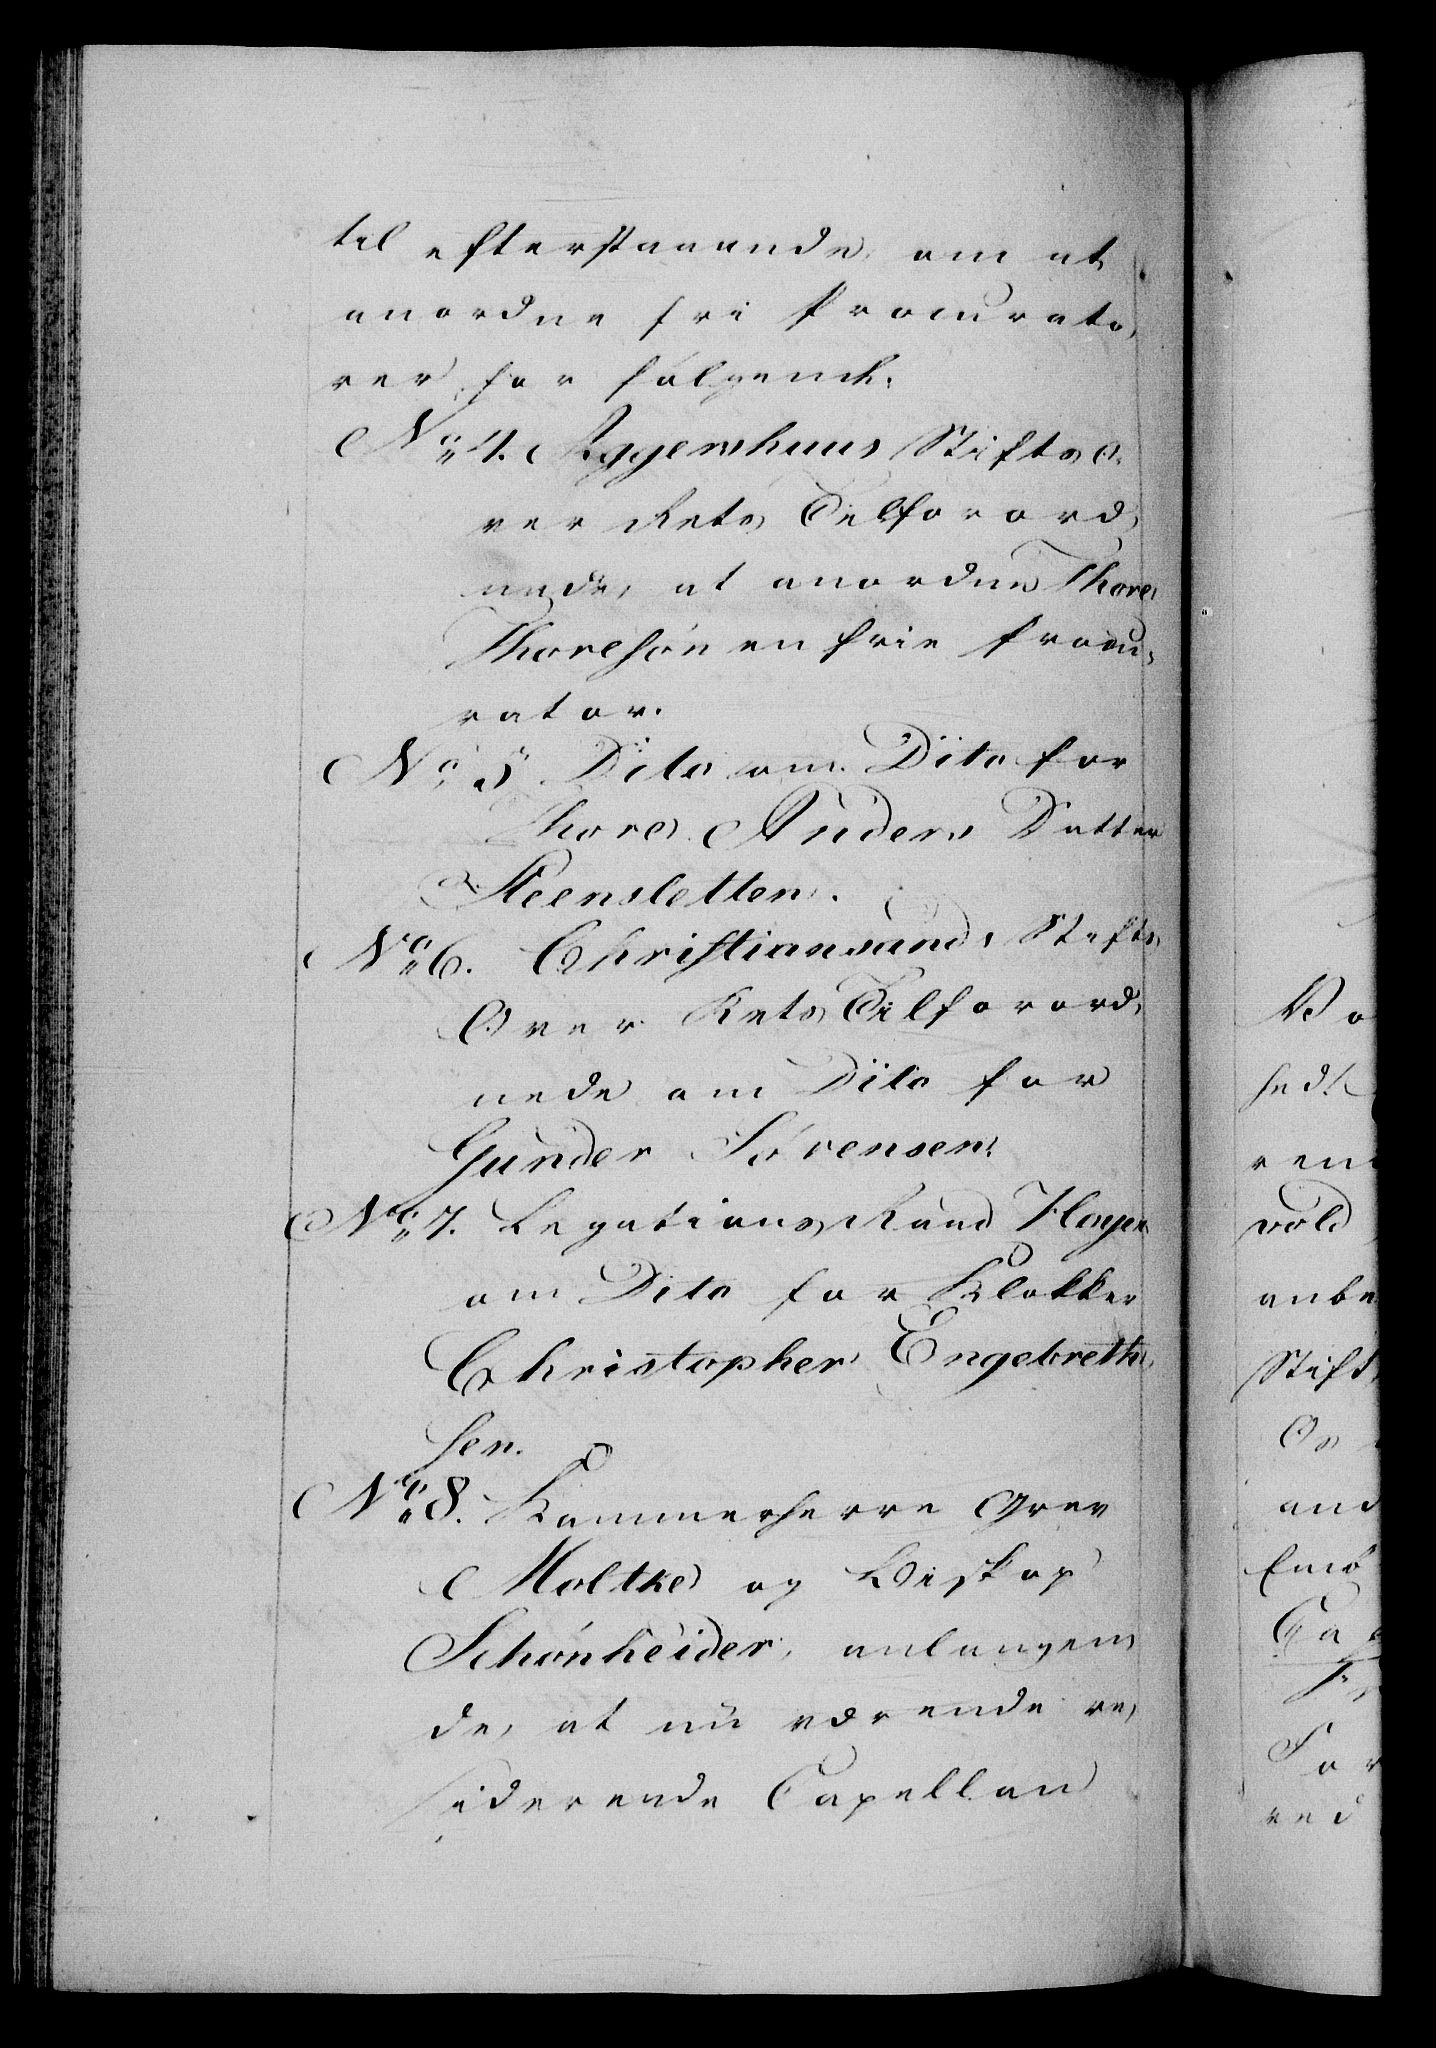 til efterstaaende om at
anordne fri Procurato,
rer for følgende.
No 4. Aggershuus Stifts O,
ver Rets Tilforord,
nede, at anordne Thore
Thoresøn en frie Procu,
rator.
No 5 Dito om Dito for
Thore Anders Datter
Steensletten.
No 6. Christiansands Stifts
Over Rets Tilforord,
nede om Dito for
Gunder Sørensen.
No 7. Legations Raad Hoyer
om Dito for Klokker
Christopher Engebreth,
sen.
No 8. Kammerherre Grev
Moltke og Biskop
Schønheider, anlangen,
de, at nu værende re,
siderende Capellan